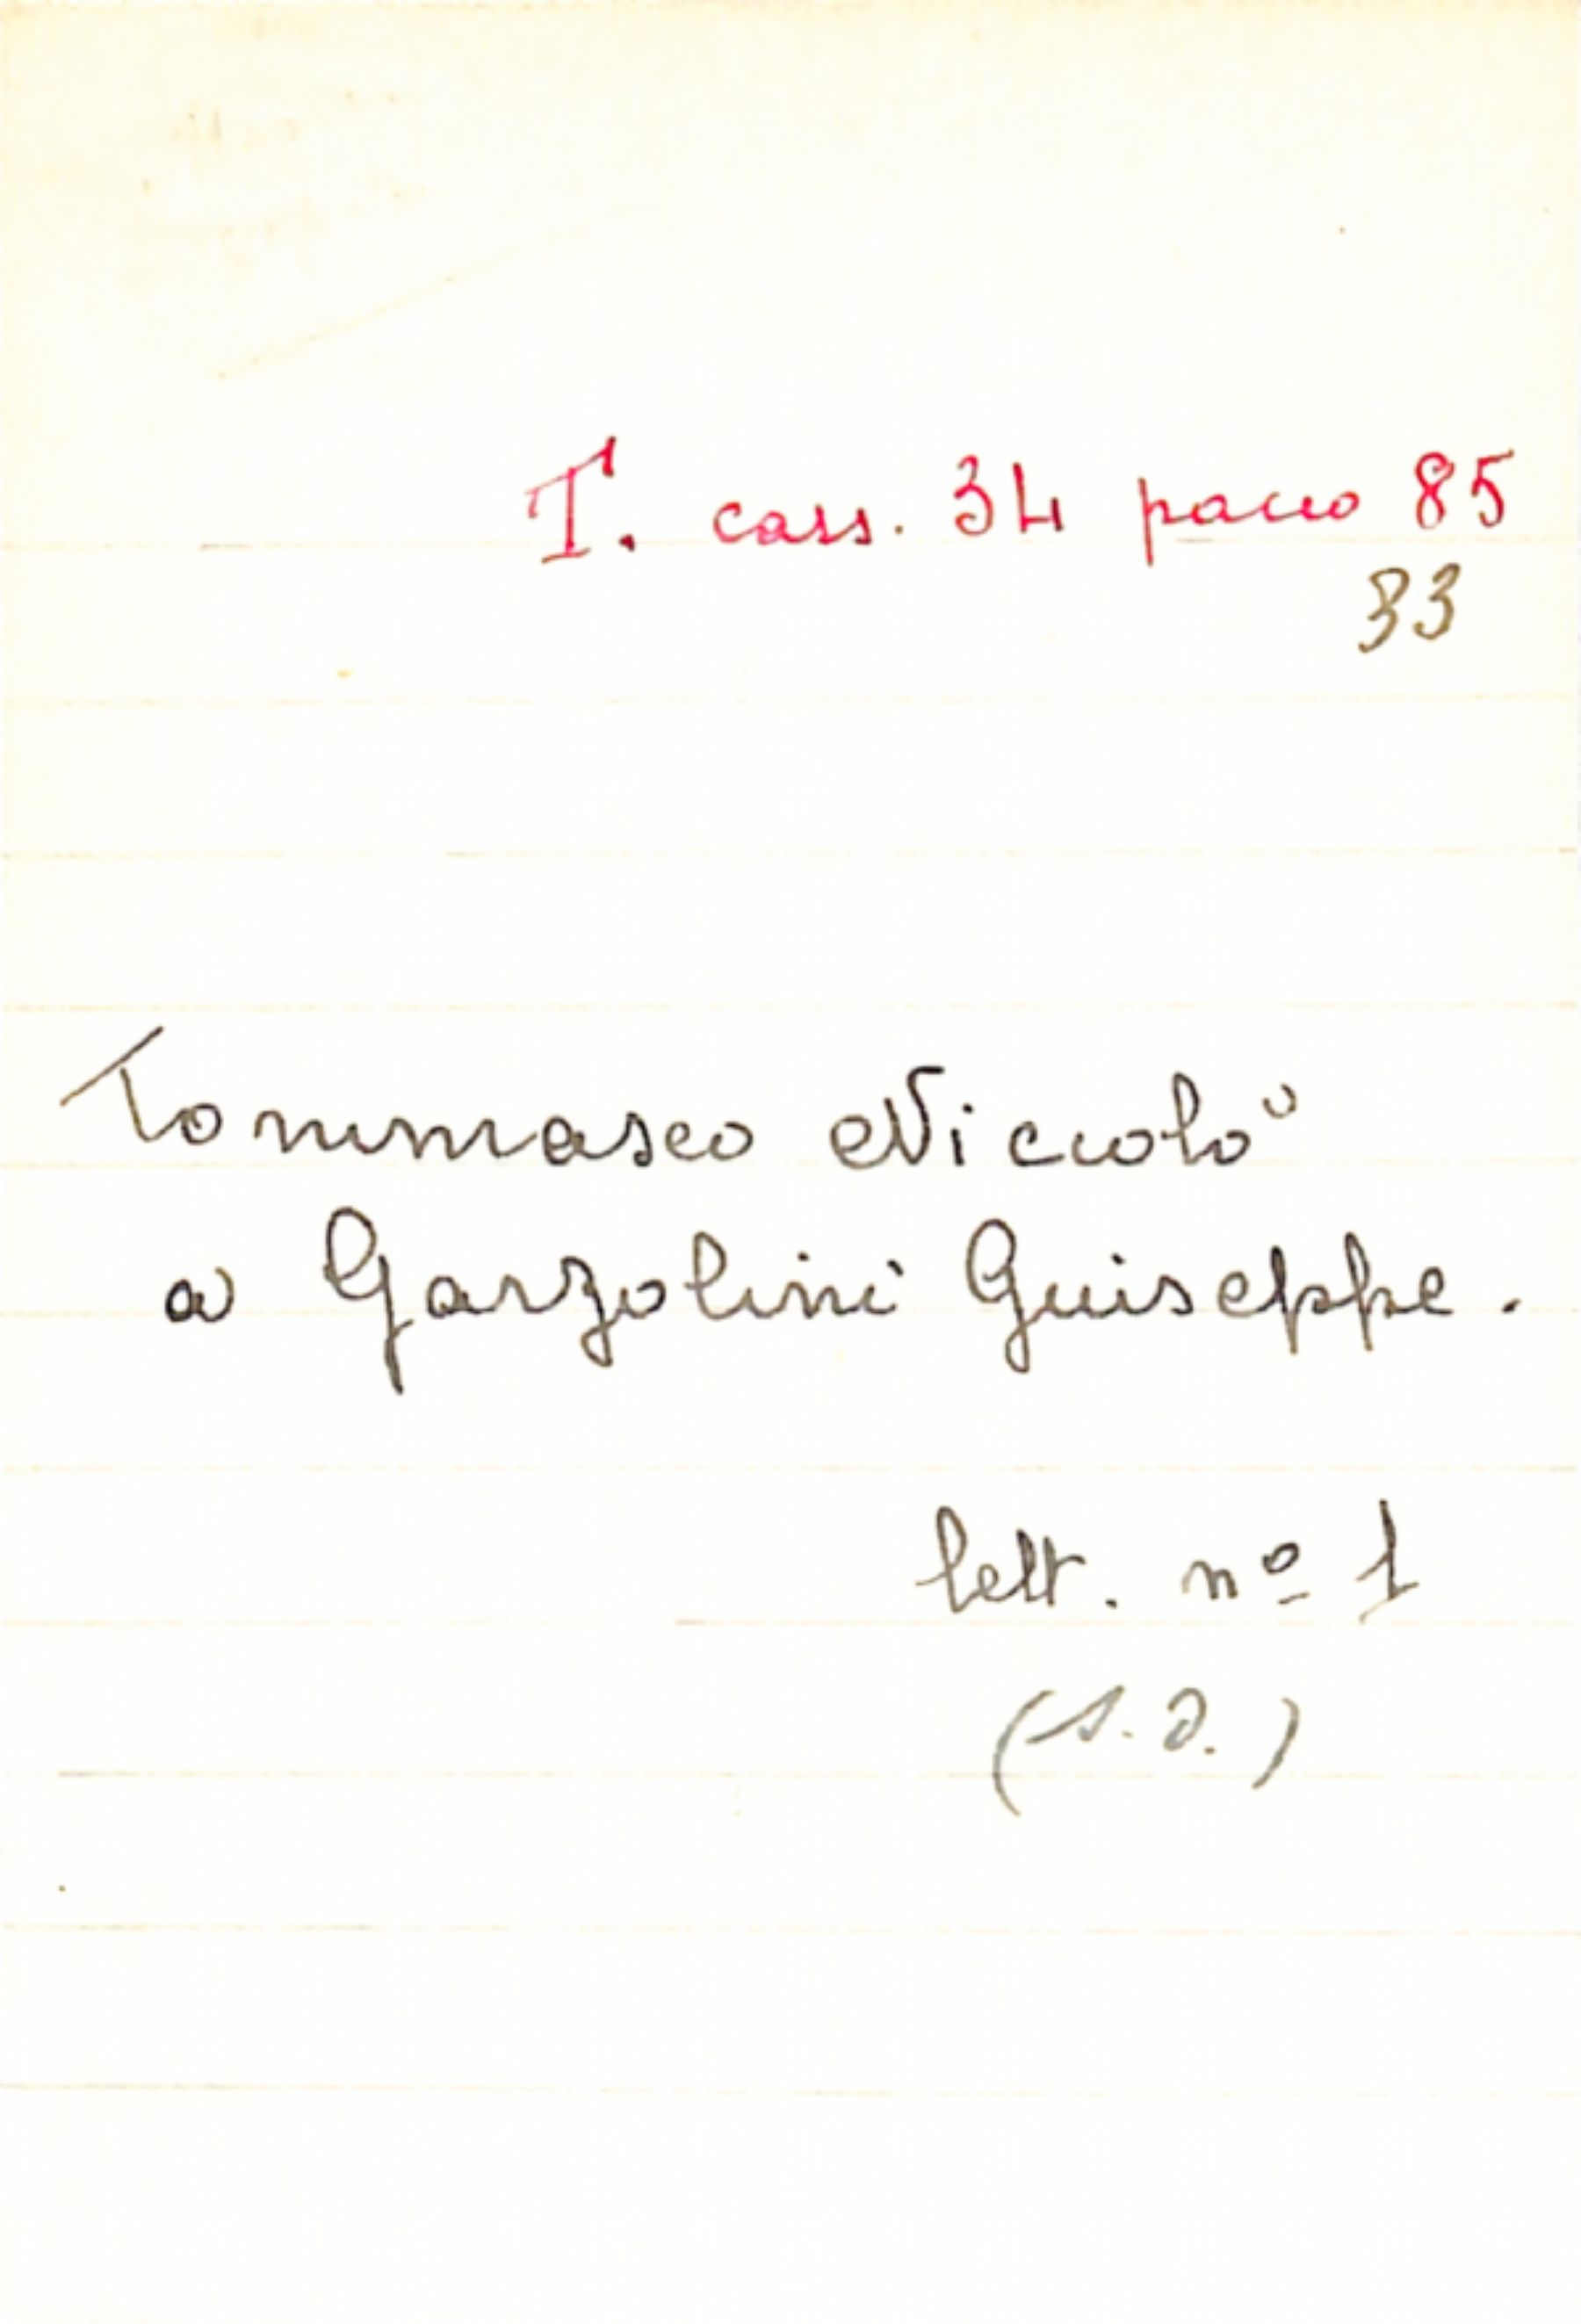 T. cass. 34 pacco 85
33
Tommaseo Niccolò
a Garzolini Guiseppe.
lett. nº 1
(s.d.)